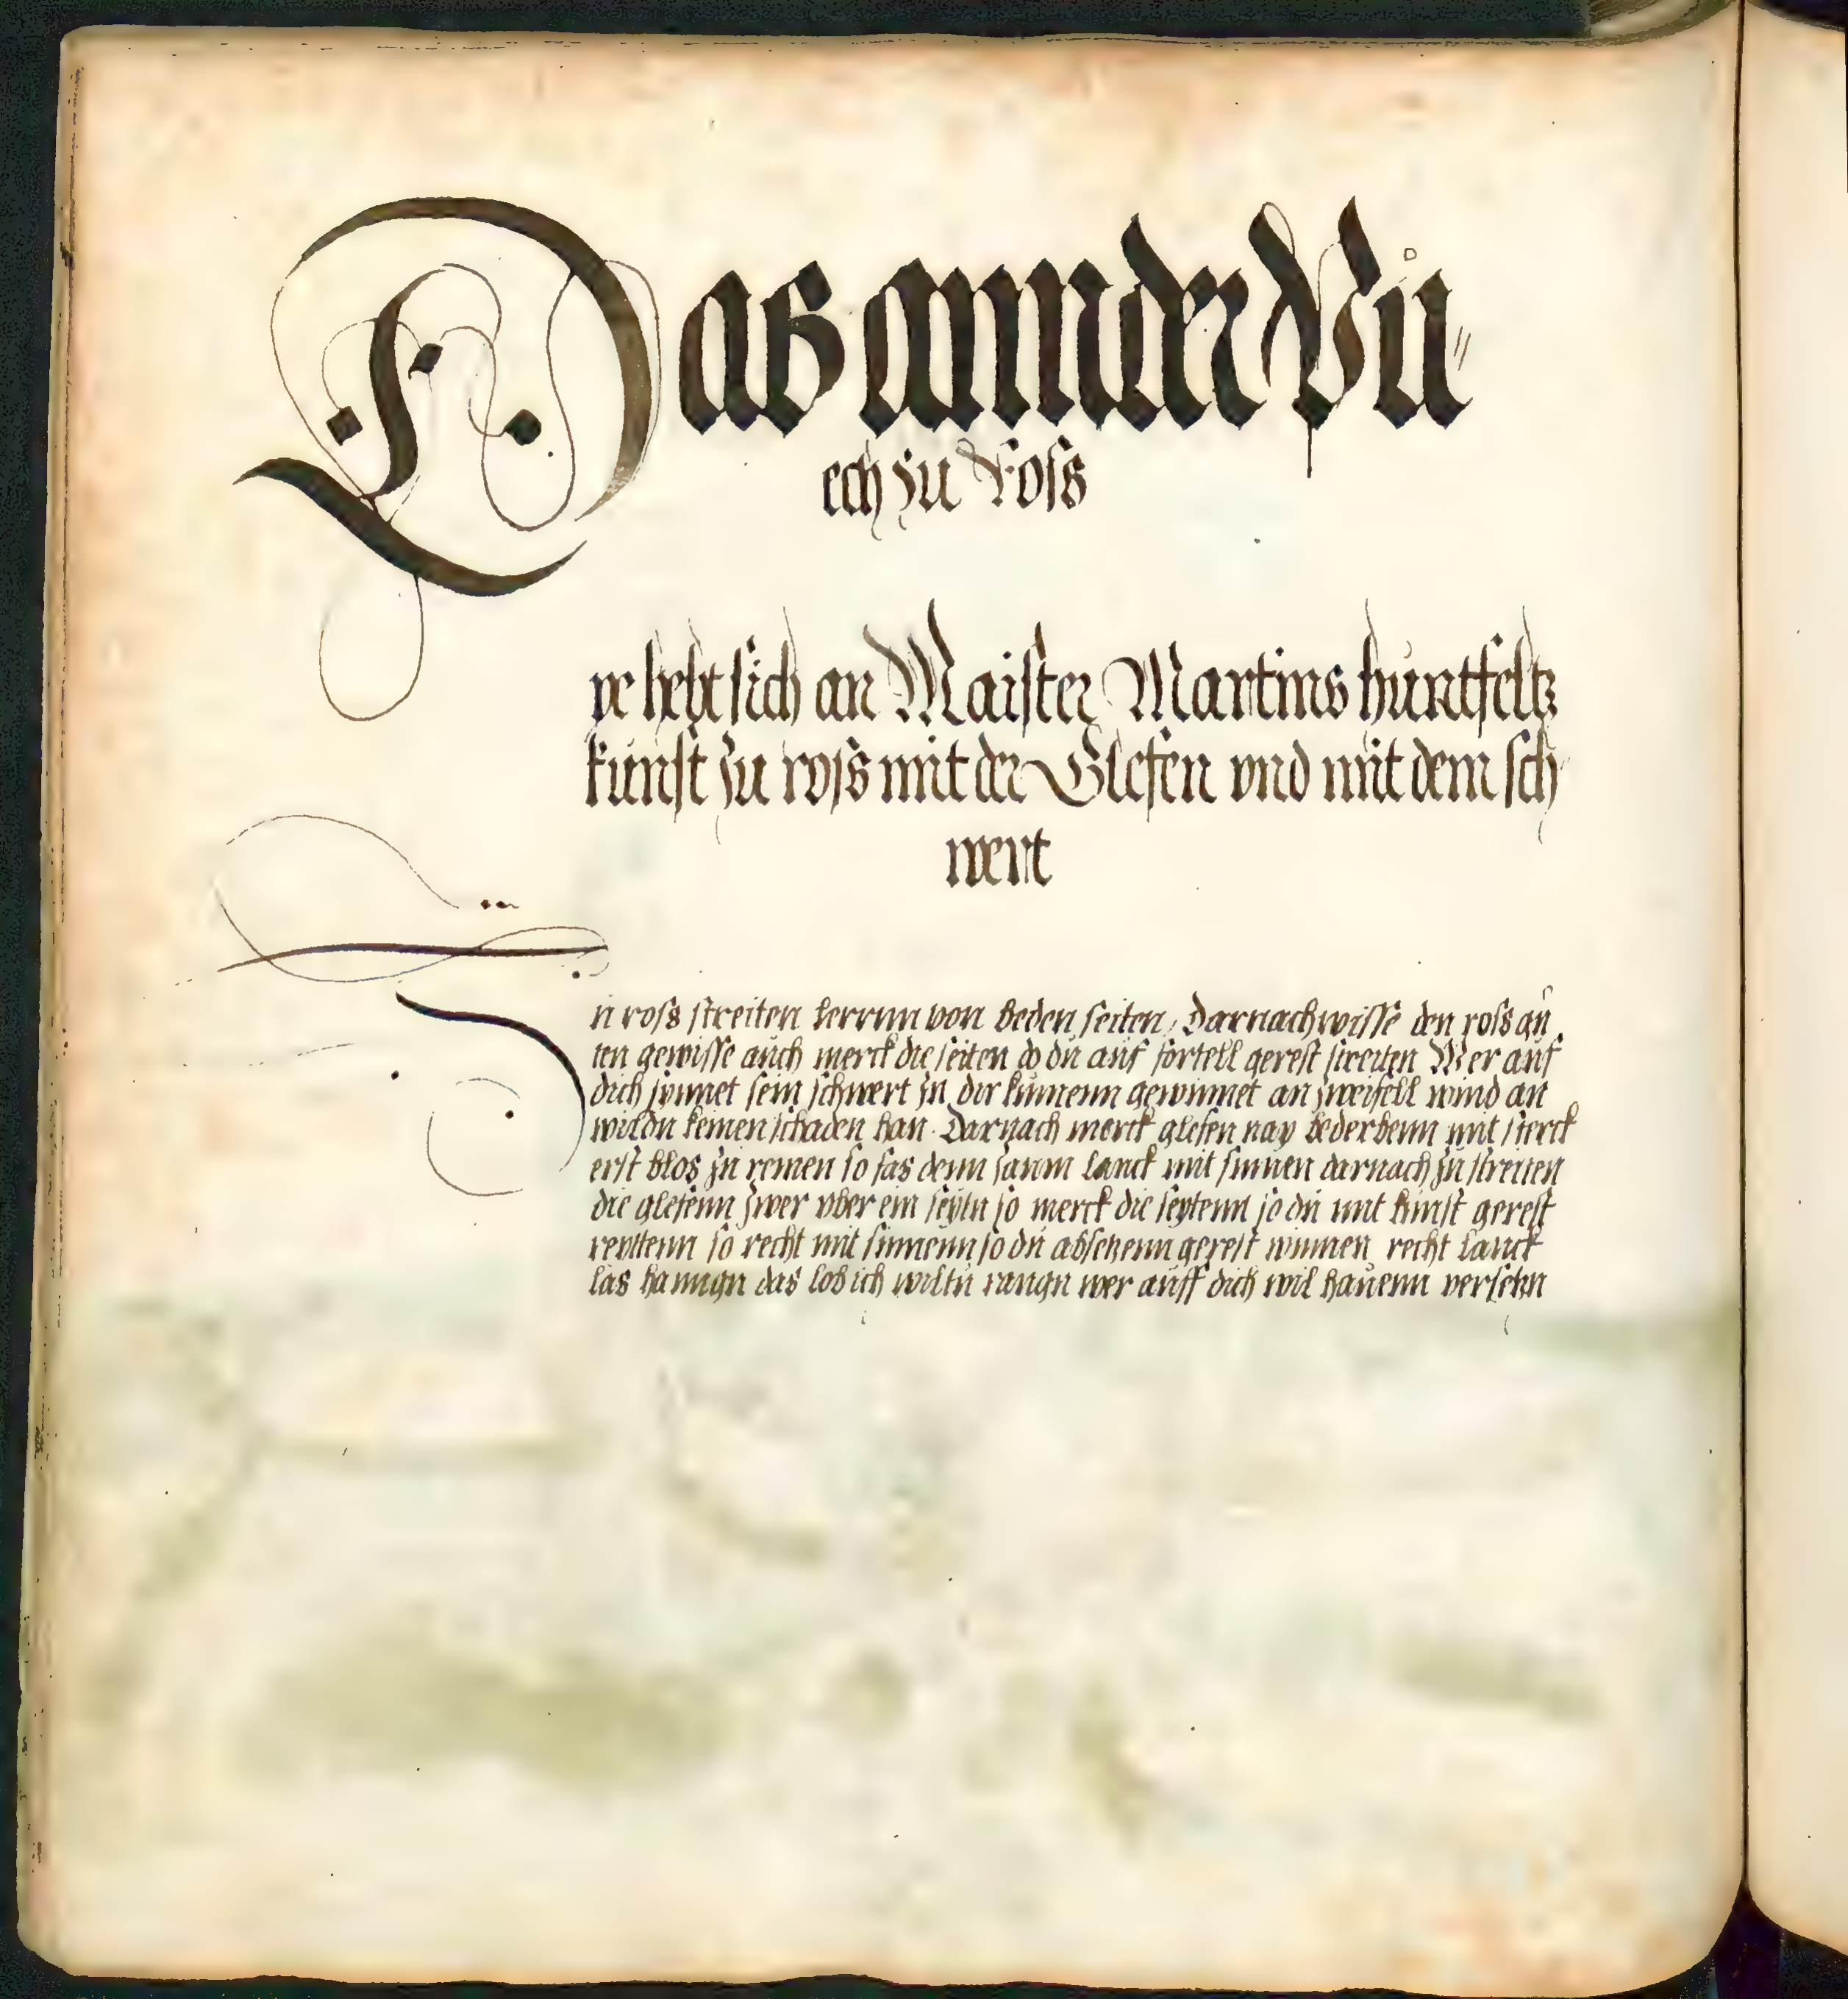 Das annder Pü=
ech zu Ross
ye hebt sich an Maister Martins hüntfeltz
künst zu ross mit der Glesen vnd mit dem sch
wert
Zu ross streiten kerrnn von beden seiten, Darnach wisse den ross gü
ten gewisse auch merck die seiten do dü aüf fortell gerest streiten Wer aüf
dich synnet sein schwert zu dir künnenn gewinnet an zweifell wind an
wildu keinen schaden han. Darnach merck glesen nay bederbenn mit sterck
erst blos zu rennen so fas denn lanck mit sinnen darnach zu streiten
die glesenn zwer vber ein seytn so merck die seytenn so du mit künst gerest
reyttenn so recht mit sinnenn so dü absetzenn gerest winnen recht lanck
las hanngn das lob ich wiltü rangn wer aüff dich wil haüenn versetzn